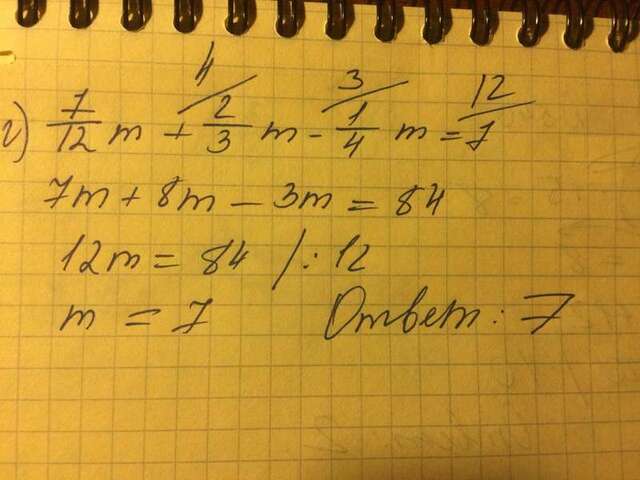 г) 7/12 m + 4/ 2/3 m - 3/ 1/4 m = 12/ 7
7m + 8m - 3m = 84
12m = 84 /: 12
m = 7 Ответ: 7